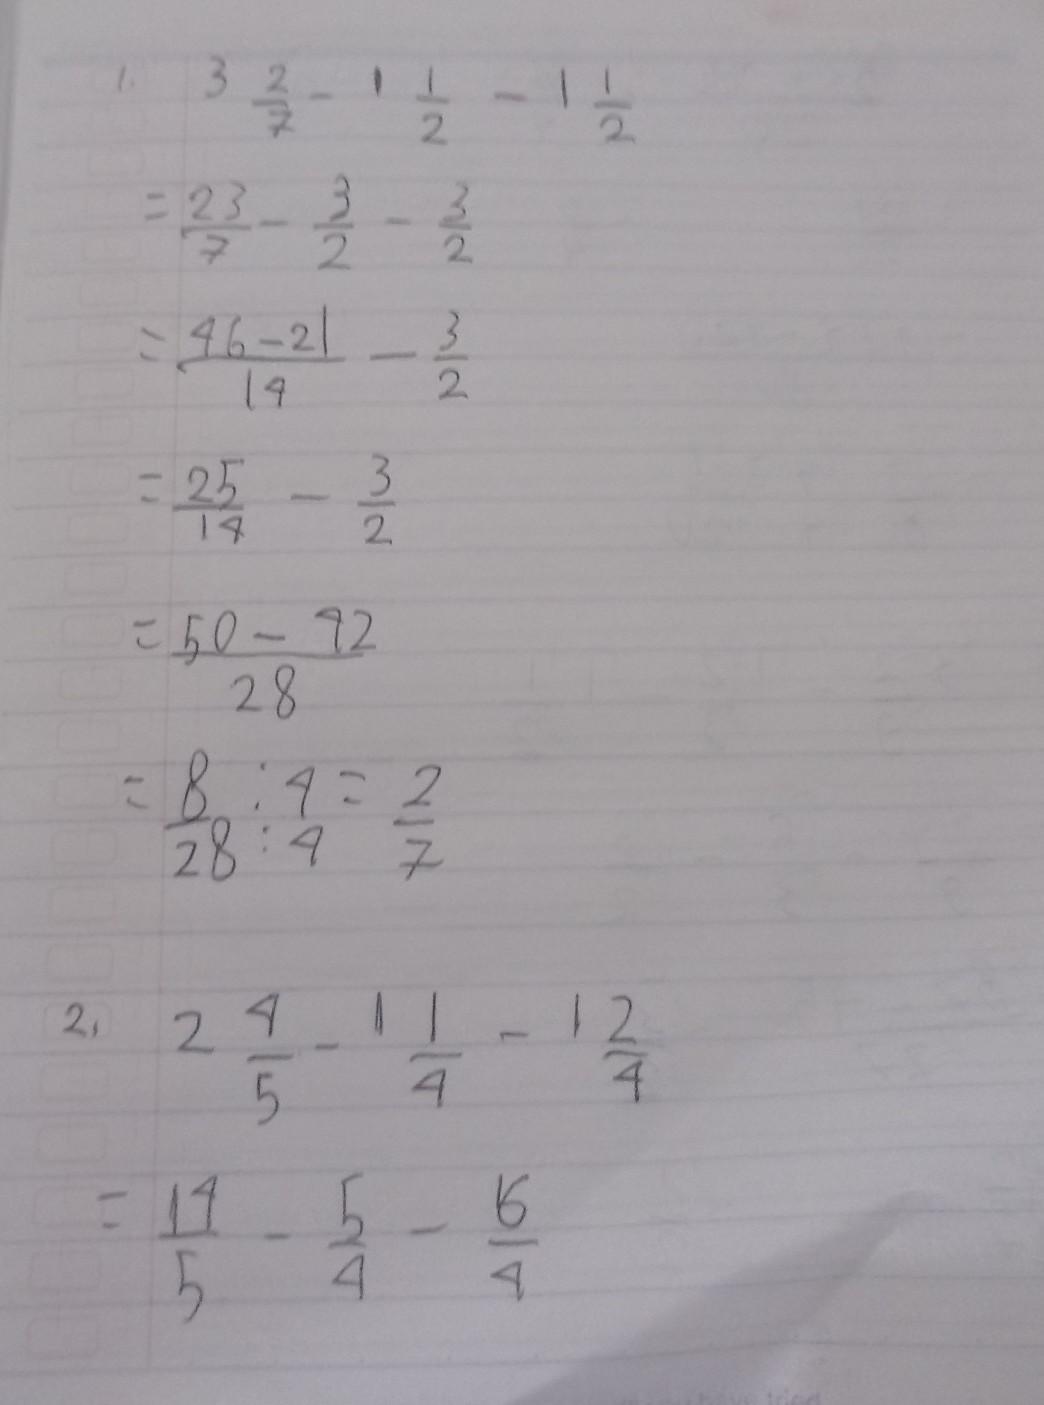 1. 3 2/7 - 1 1/2 - 1 1/2
= 23/7 - 3/2 - 3/2
= 46 - 21/14 - 3/2
= 25/14 - 3/2
= 50 - 42/28
= 8/28 : 4/4 = 2/7
2. 2 4/5 - 1 1/4 - 1 2/4
= 14/5 - 5/4 - 6/4